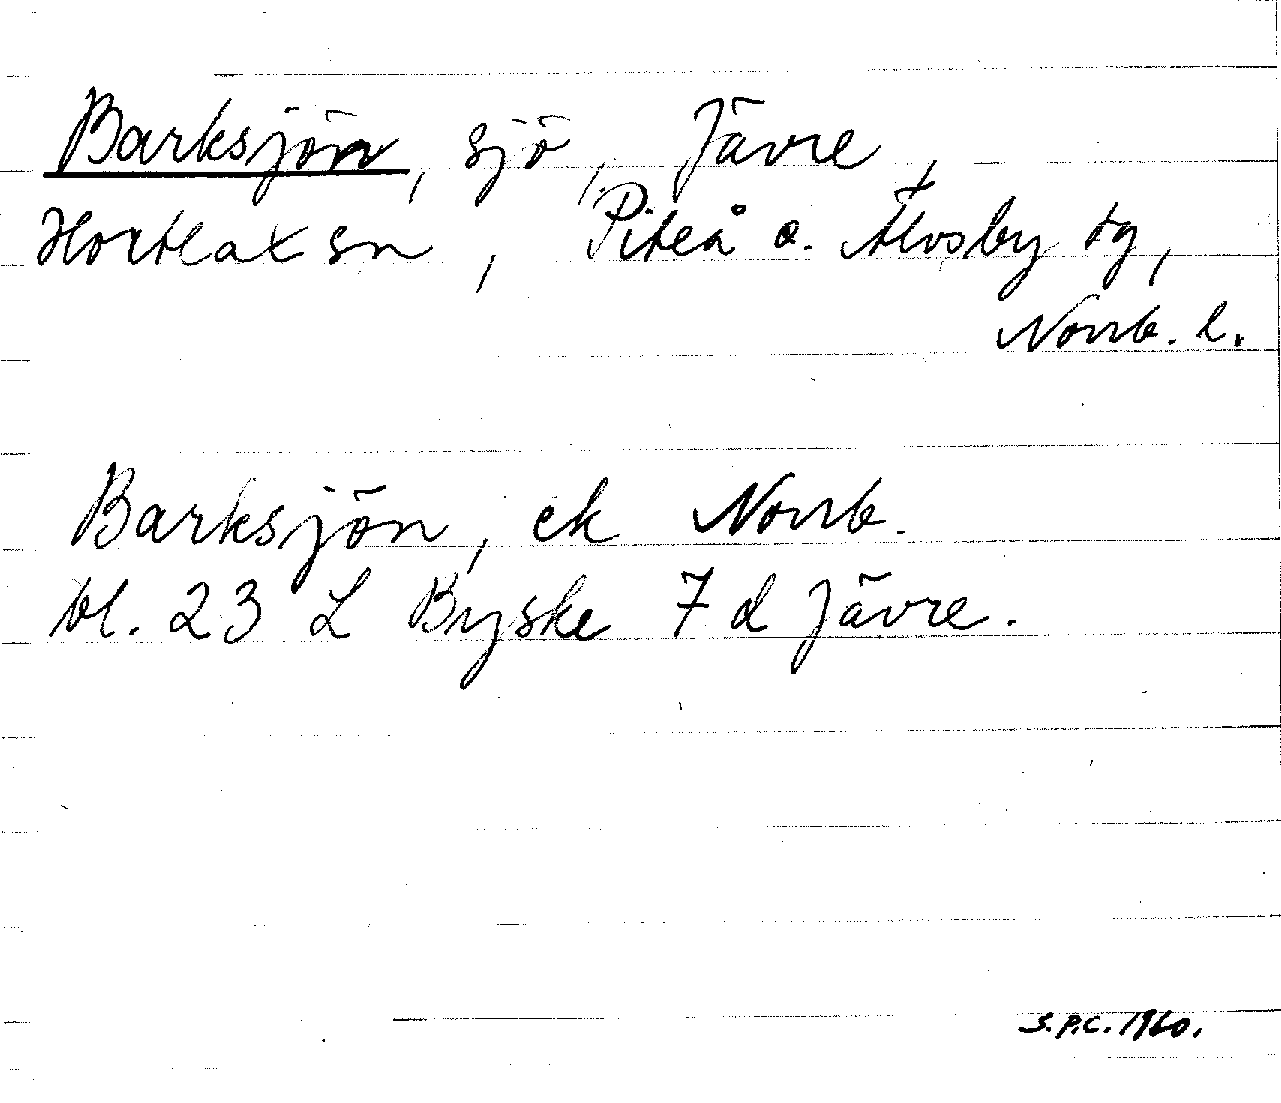 Barksjön, sjö, Jävre,
Hortlax sn, Piteå o. Älvsby tg,
Norrb. l.
Barksjön, ek Norrb.
bl. 23 L Byske 7 d Jävre.
S.P.C. 1960.